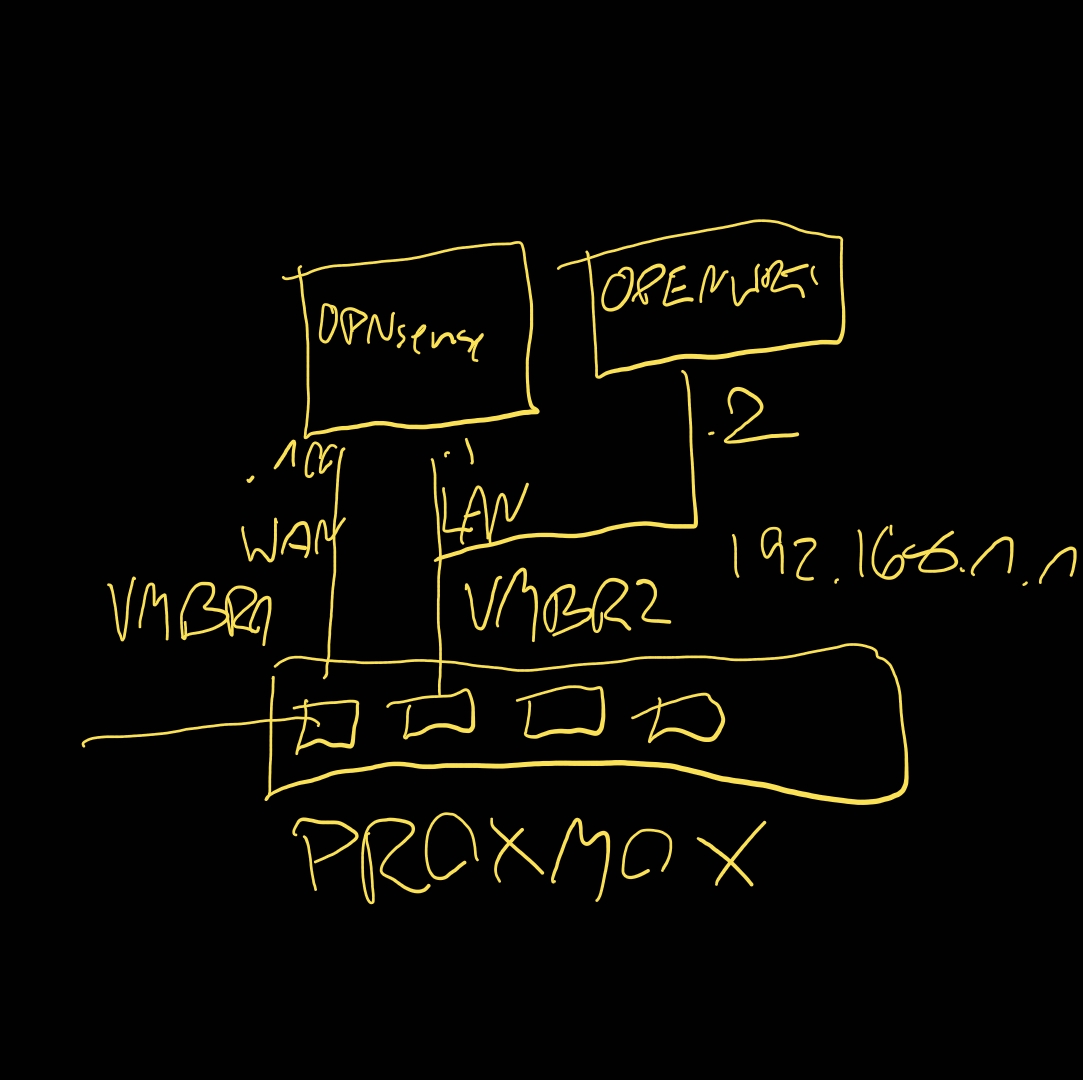 OPNsense
OPENWRT
.100
.1
.2
WAN
LAN
192.168.1.1
VMBR1
VMBR2
PROXMOX